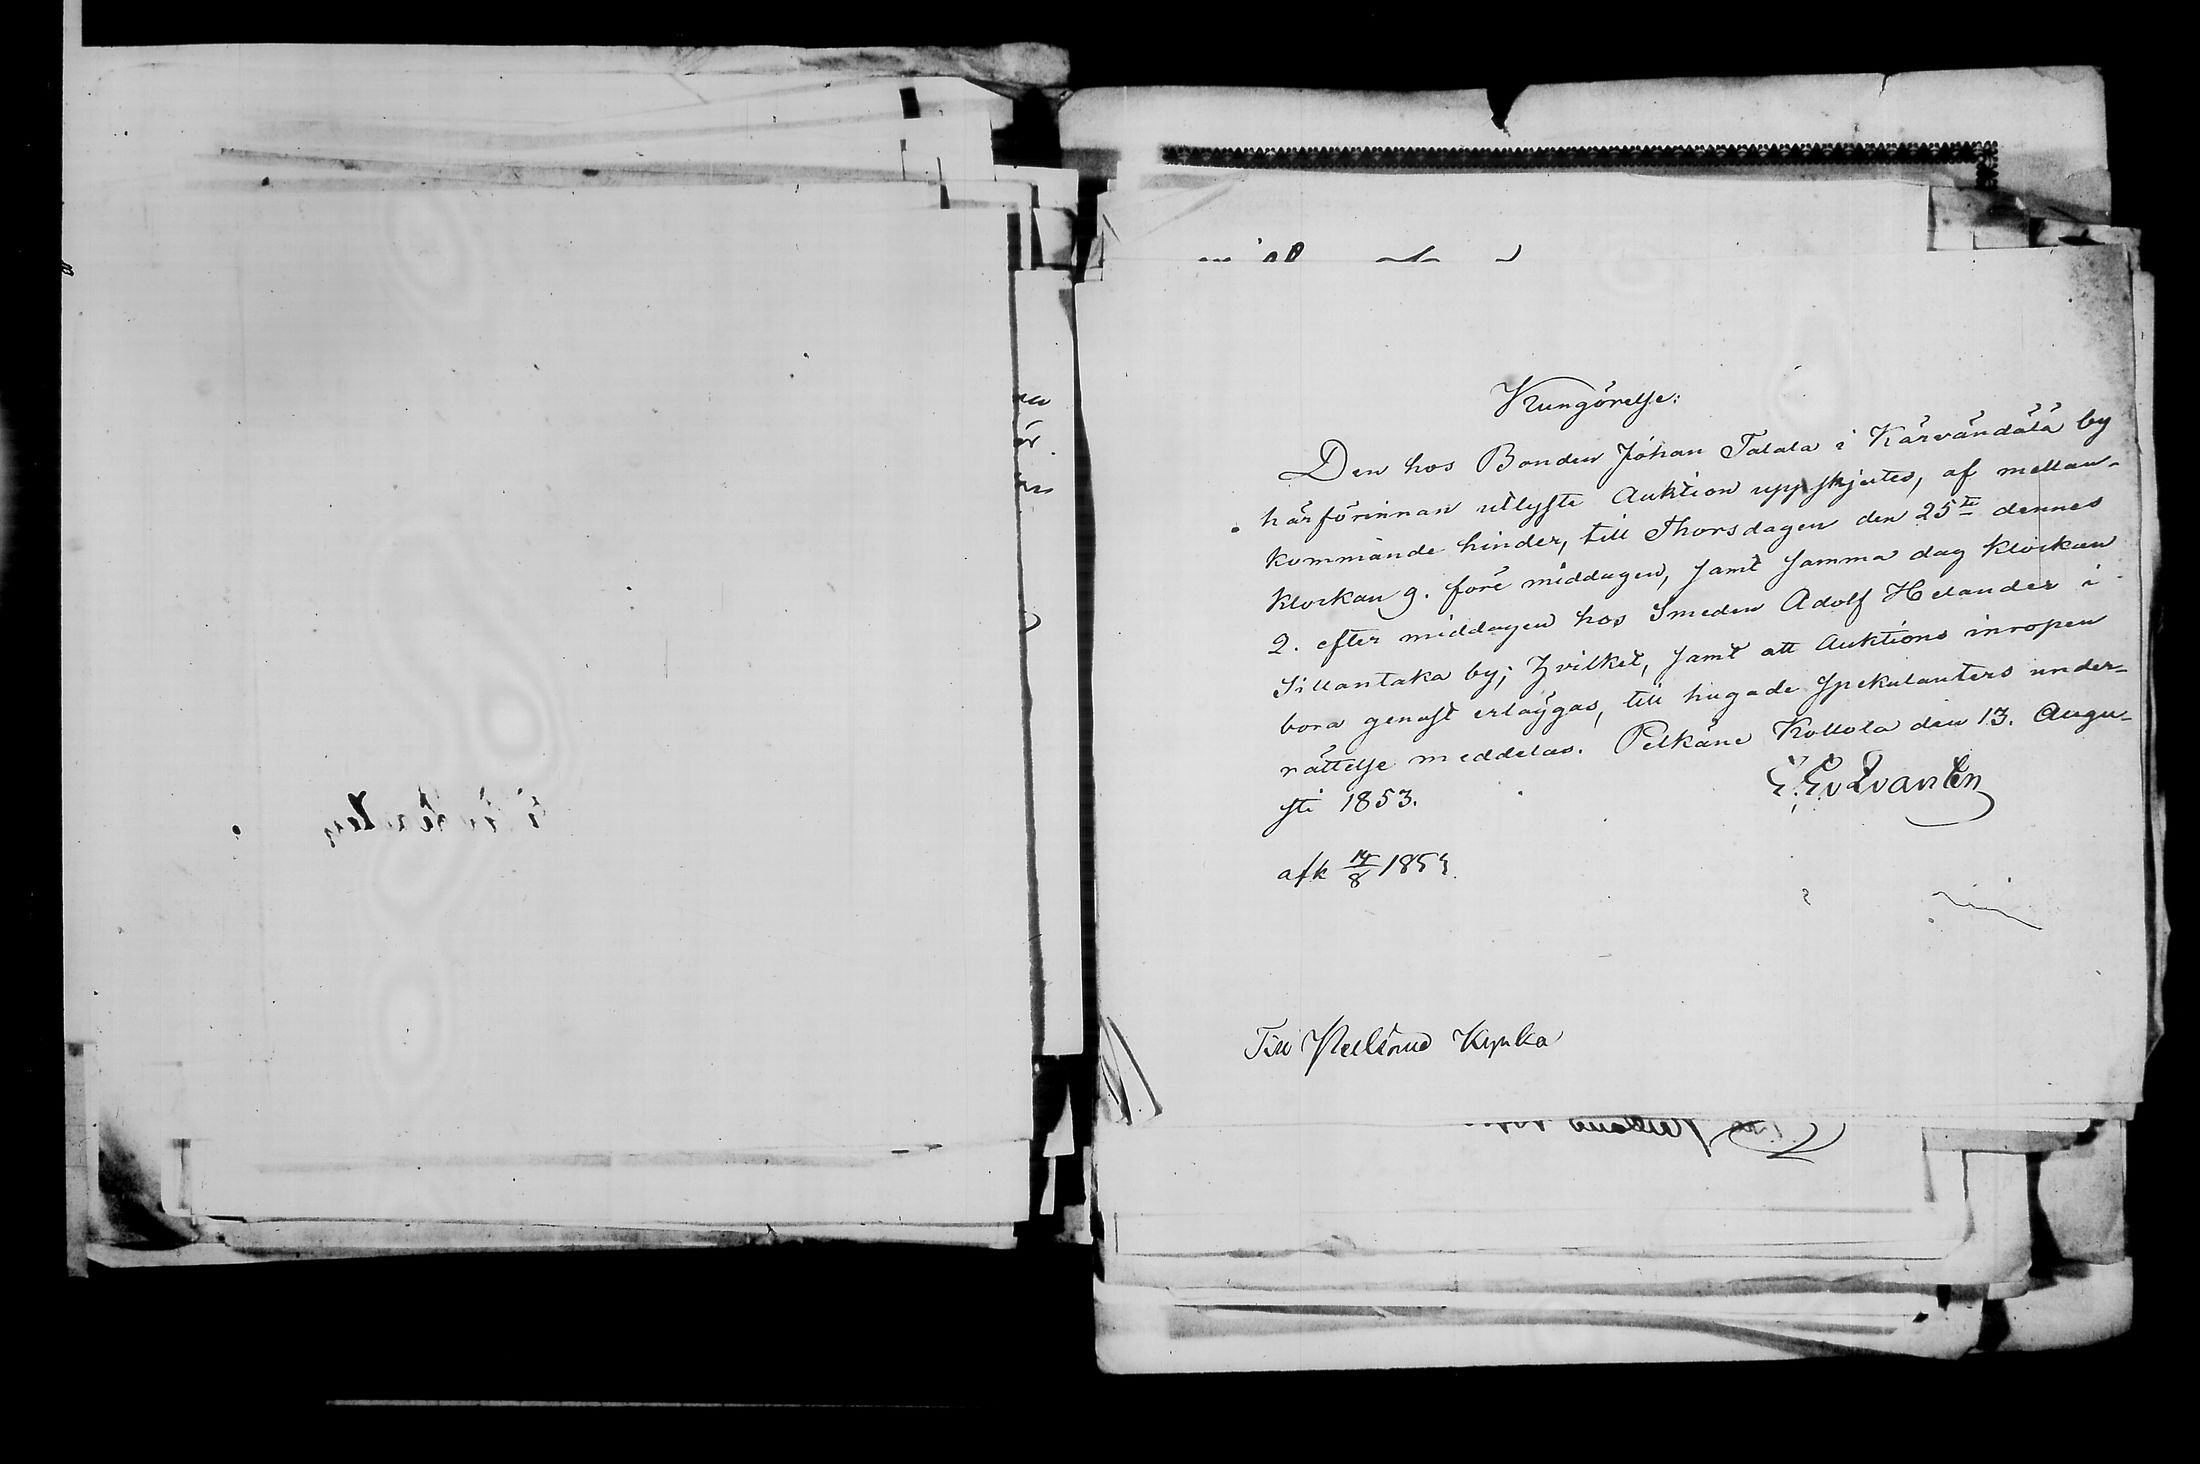 Kungörelse:
Den hos Bonden Johan Talala i Kärvändälä by
härförinnan utlyste Auktion uppskjutes, af mellan-
kommande hinder, till Thorsdagen den 25te dennes
klockan 9. före middagen, samt samma dag klockan
2. efter middagen hos Smeden Adolf Helander i
Sillantaka by; hvilket, samt att Auktions inropen
bora genast erläggas, till hugade spekulanters under-
rättelse meddelas. Pelkäne Kollola den 13. Augu-
sti 1853.
E. E. v Qvanten
afk 14/8 1853
Till Pelkäne Kyrka